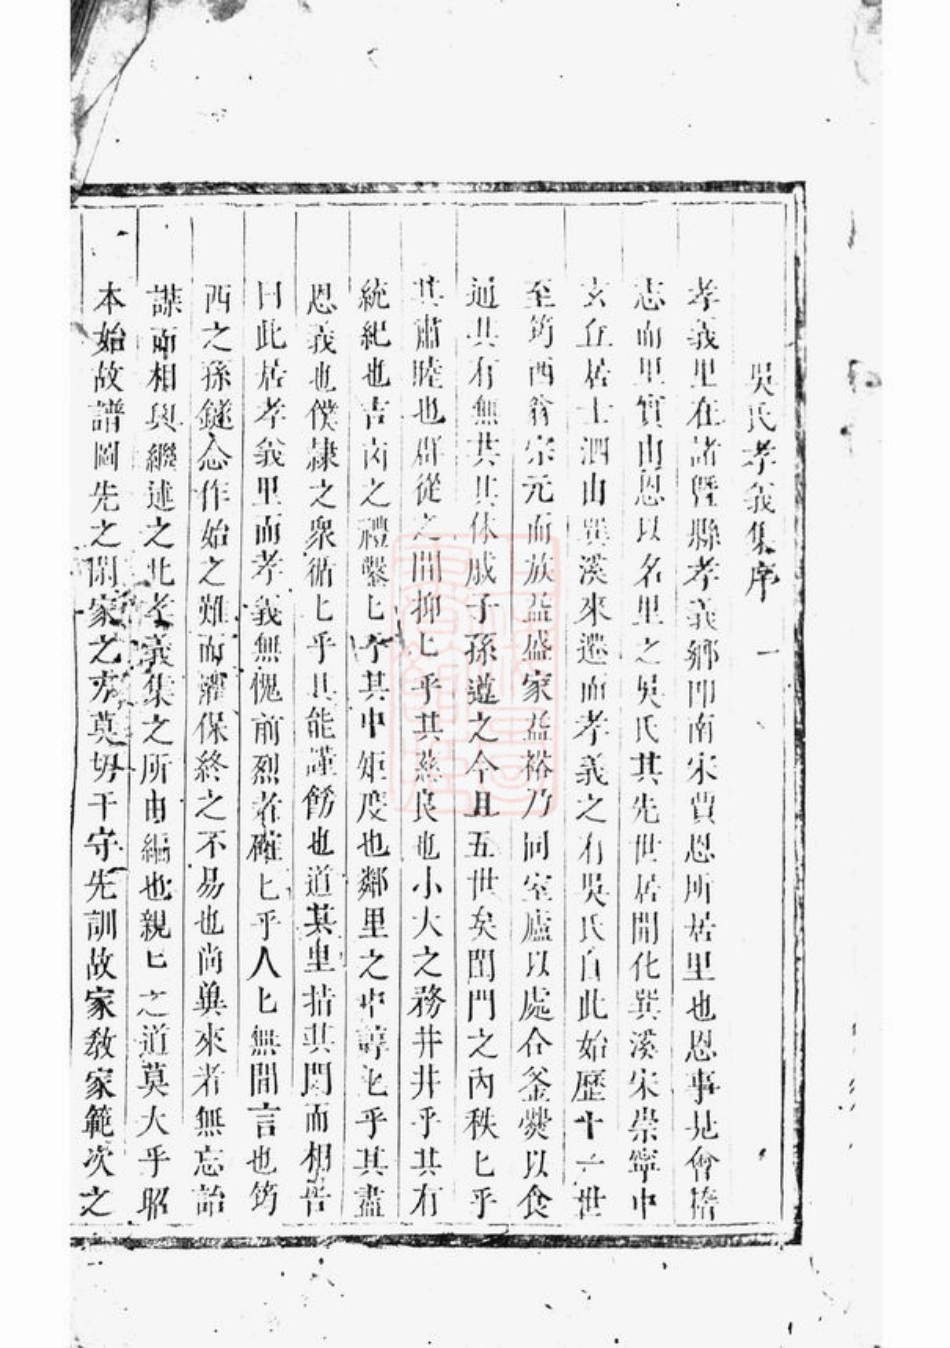 吳氏孝義集序
孝義里在諸曁縣孝義鄉卽南宋賈恩所居里也恩事見會稽
志而里實由恩以名里之吳氏其先世居開化巽溪宋崇寧中
玄丘居士泗由巽溪來遷而孝義之有吳氏自此始歷十一世
至筠西翁宗元而族益盛家益裕乃同室廬以處合釜爨以食
通其有無共其休戚子孫遵之今且五世矣閨門之內秩匕乎
其肅睦也群從之間抑匕乎其慈良也小大之務井井乎其有
統紀也吉凶之禮鑿匕乎其中矩度也鄰里之中諄匕乎其盡
恩義也僕隸之衆循匕乎其能謹飭也道其里指其門而相告
曰此居孝義里而孝義無愧前烈者確匕乎人匕無間言也筠
西之孫鐩念作始之難而懼保終之不易也尚冀來者無忘詒
謀而相與繼述之此孝義集之所由編也親匕之道莫大乎昭
本始故譜圖先之閑家之方莫切于守先訓故家敎家範次之